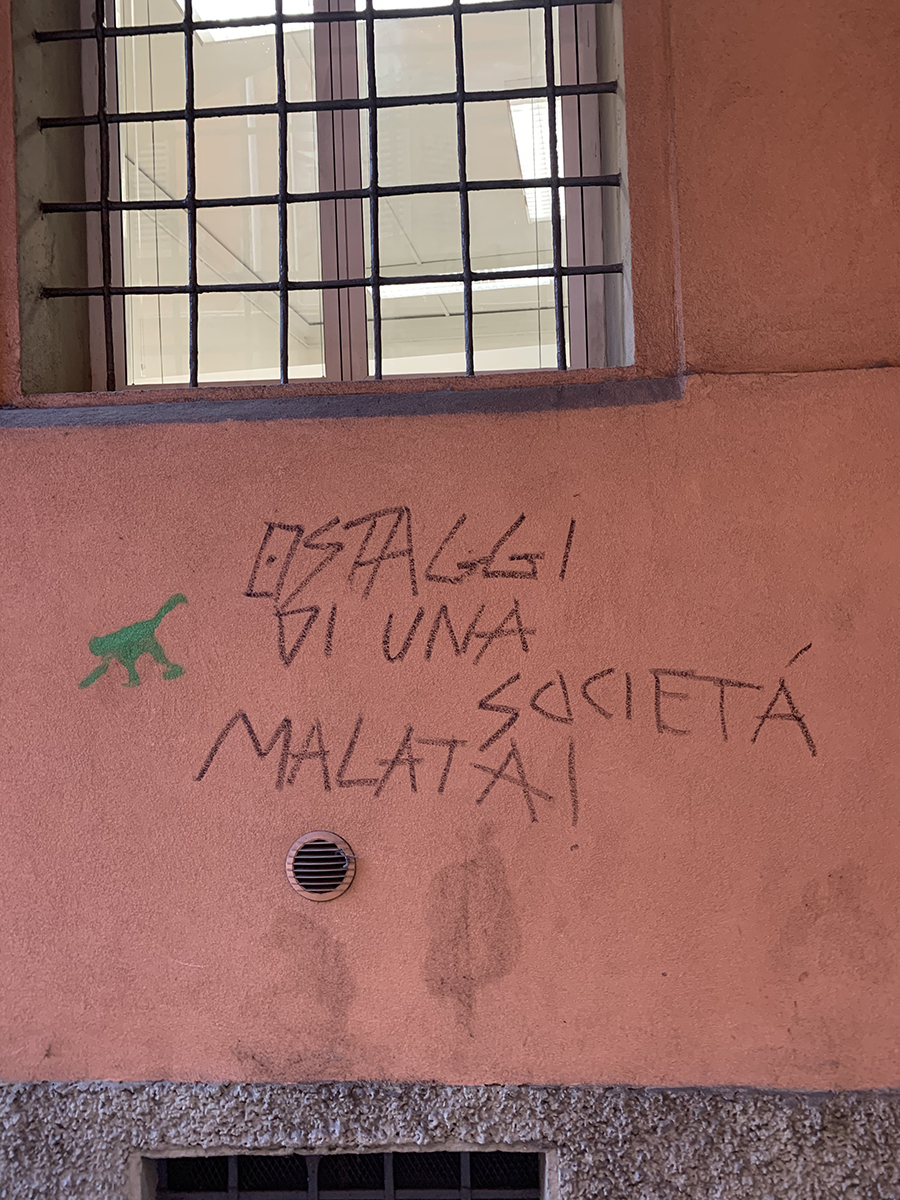 OSTAGGI
DI UNA
SOCIETÁ
MALATA!